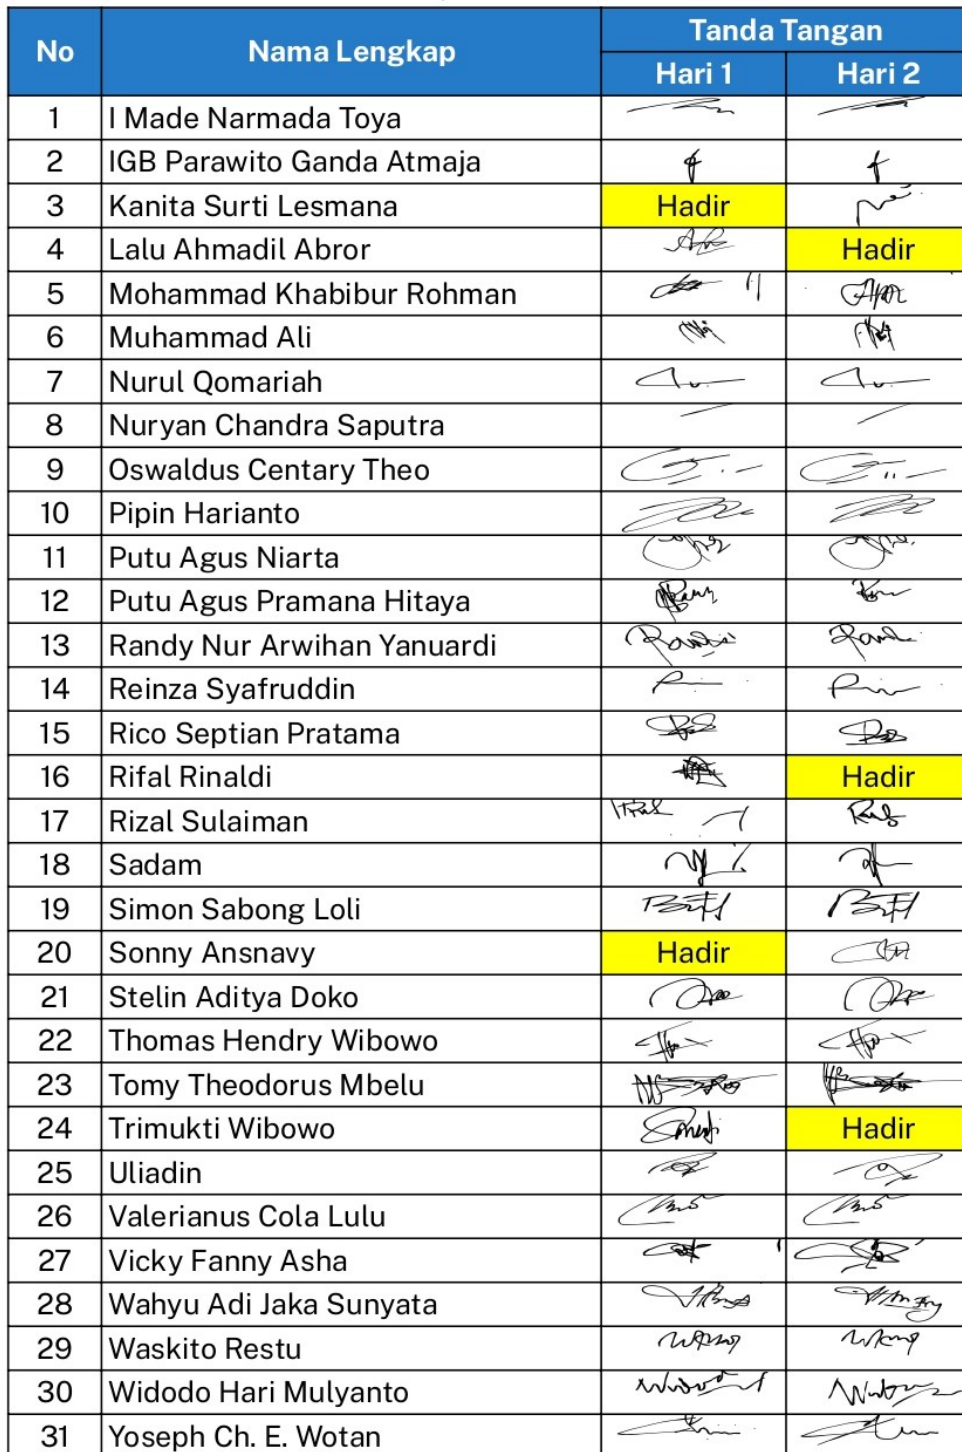 No Nama Lengkap Tanda Tangan
Hari 1 Hari 2
1 I Made Narmada Toya
2 IGB Parawito Ganda Atmaja
3 Kanita Surti Lesmana Hadir
4 Lalu Ahmadil Abror Hadir
5 Mohammad Khabibur Rohman
6 Muhammad Ali
7 Nurul Qomariah
8 Nuryan Chandra Saputra
9 Oswaldus Centary Theo
10 Pipin Harianto
11 Putu Agus Niarta
12 Putu Agus Pramana Hitaya
13 Randy Nur Arwihan Yanuardi
14 Reinza Syafruddin
15 Rico Septian Pratama
16 Rifal Rinaldi Hadir
17 Rizal Sulaiman
18 Sadam
19 Simon Sabong Loli
20 Sonny Ansnavy Hadir
21 Stelin Aditya Doko
22 Thomas Hendry Wibowo
23 Tomy Theodorus Mbelu
24 Trimukti Wibowo Hadir
25 Uliadin
26 Valerianus Cola Lulu
27 Vicky Fanny Asha
28 Wahyu Adi Jaka Sunyata
29 Waskito Restu
30 Widodo Hari Mulyanto
31 Yoseph Ch. E. Wotan